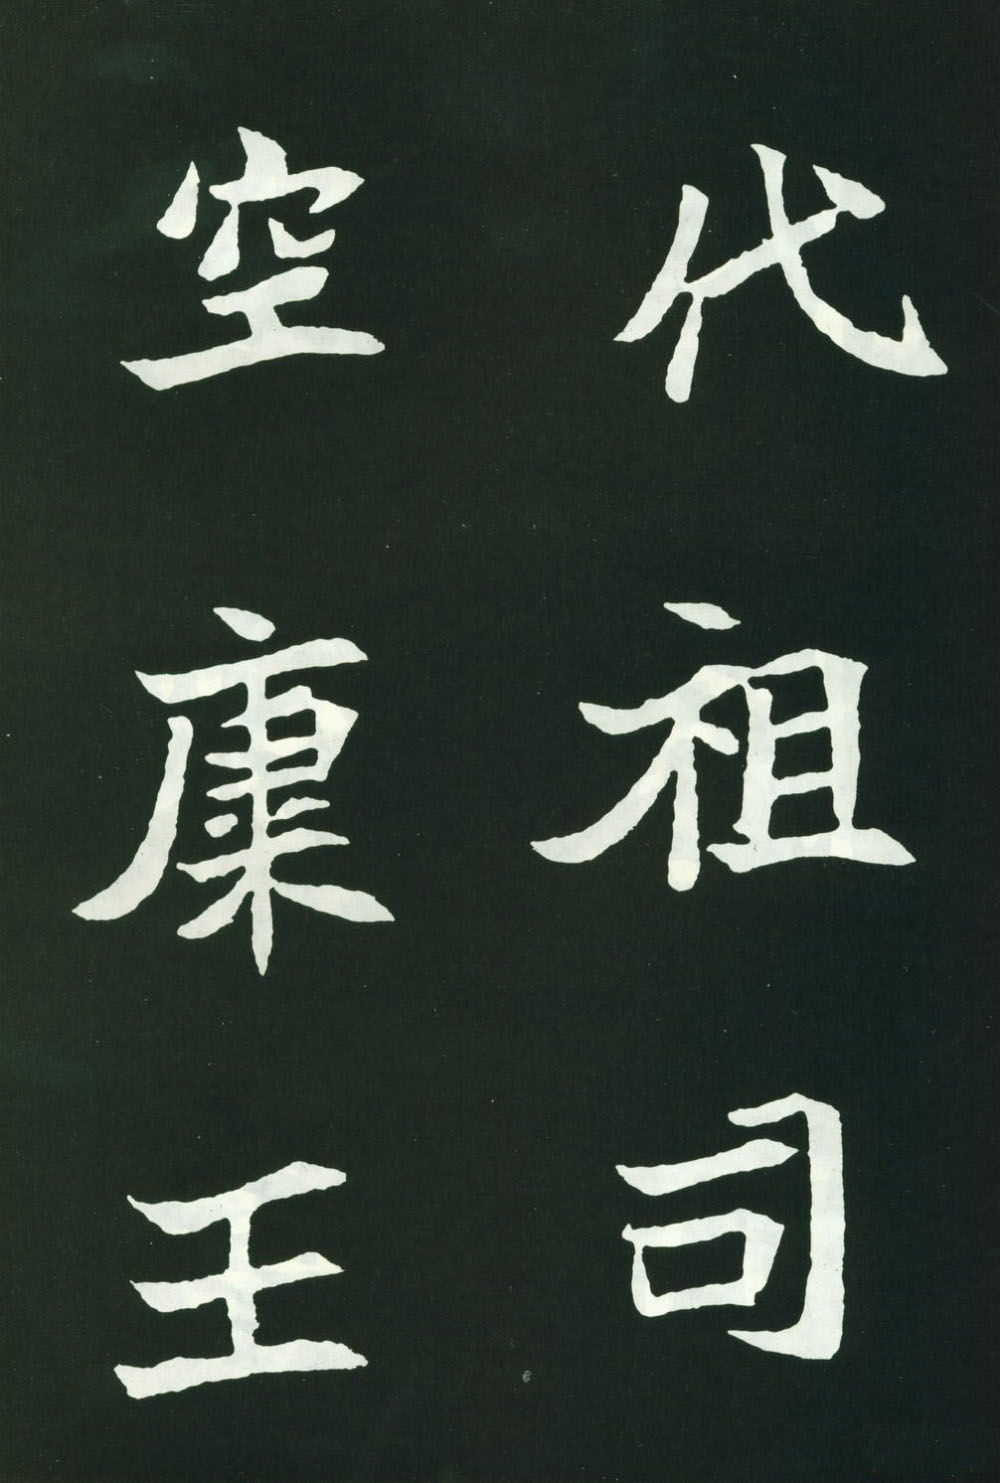 代祖司
空康王